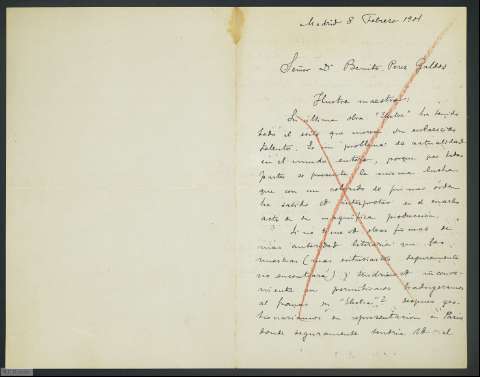 Madrid 8 Febrero 1901
Señor Dn Benito Perez Galdós
Ilustre maestro:
Su última obra "Electra" ha tenido
todo el éxito que merece su esclarecido
talento. Es un problema de actualidad
en el mundo entero, porque por todas
partes se presenta la misma lucha
que con un colorido de primer orden
ha sabido Vd interpretar en el cuarto
acto de su magnífica producción.
Si no tiene Vd otras firmas de
más autoridad literaria que las
nuestras (mas entusiastas seguramente
no encontrará) y tendría Vd inconve-
niente en permitirnos tradugeramos
al frances su "Electra"? despues ges-
tionariamos su representacion en Paris
donde seguramente tendría Vd el